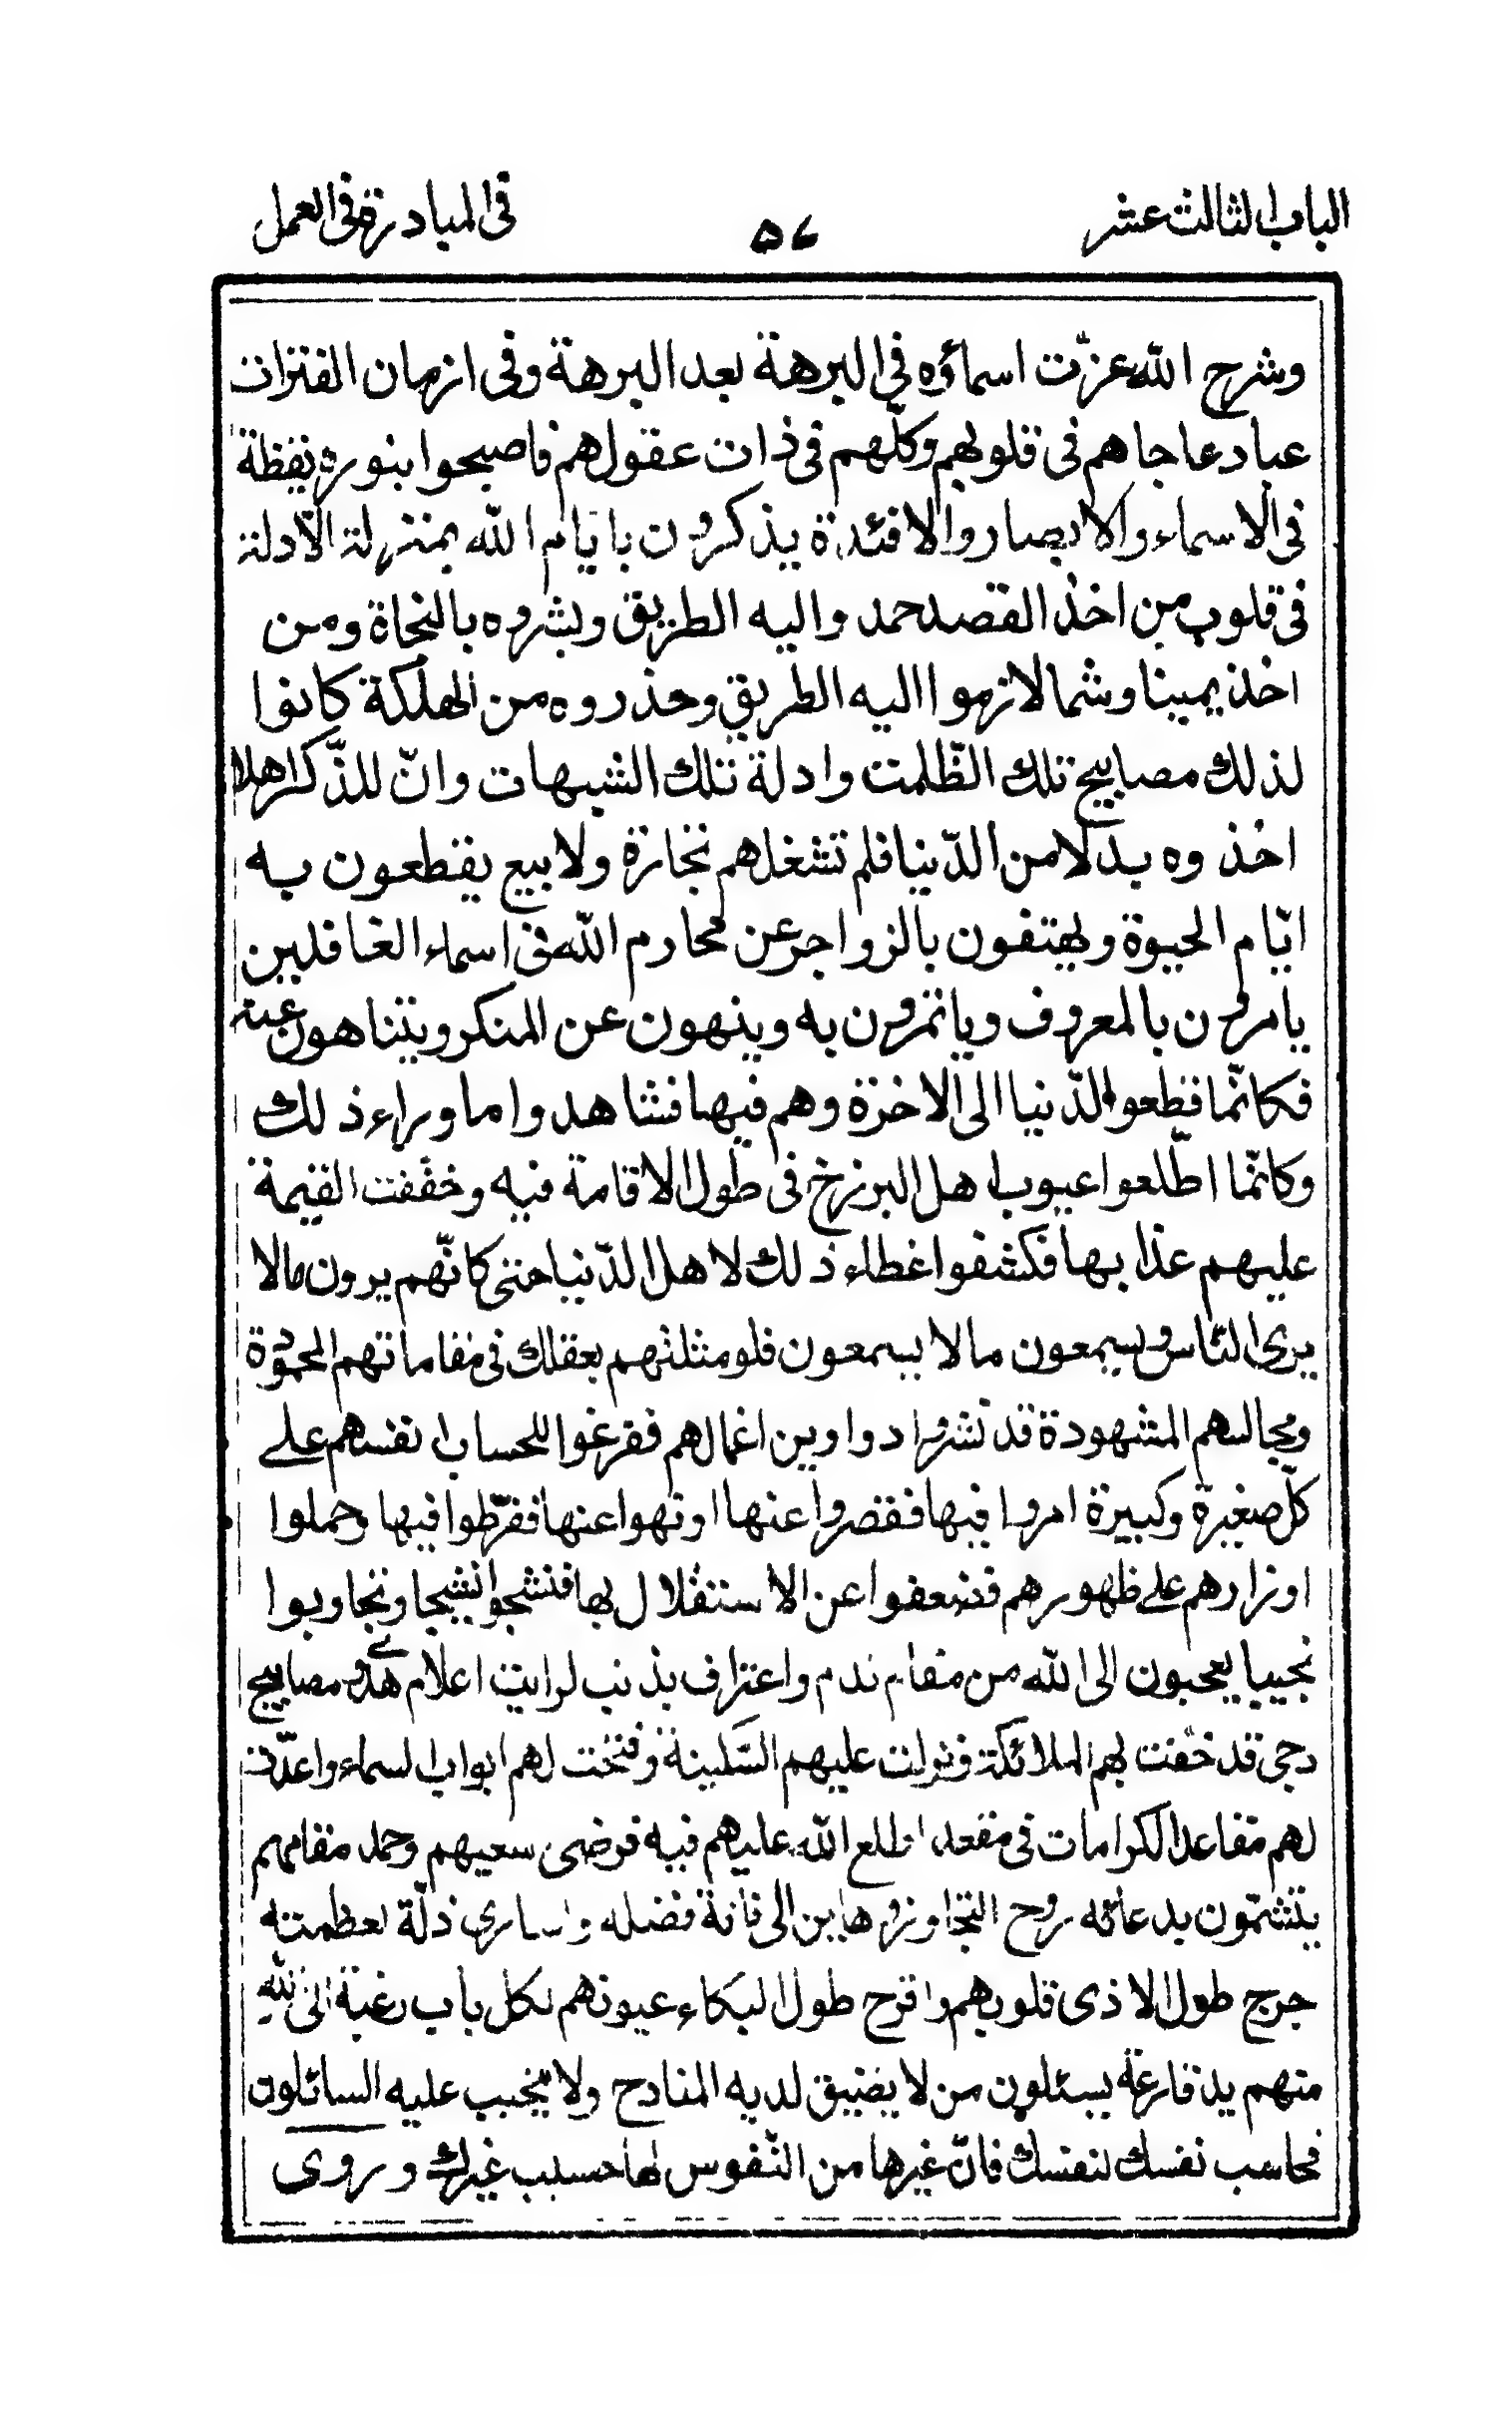 الباب الثالث عشر
٥٧
فى المبادرة فى العمل
وشرح الله عزّت اسماؤه فى البرهة بعد البرهة وفى ازمان الفترات
عباد عاجاهم فى قلوبهم وكلّهم فى ذات عقولهم فاصبحوا بنوره يقظة
فى الاسماء والابصار والافئدة يذكرون بايّام الله بمنزلة الادلة
فى قلوب من اخذ القصد حمد واليه الطريق وبشروه بالنجاة ومن
اخذ يمينا وشمالا نهوا اليه الطريق وحذروه من الهلكة كانوا
لذلك مصابيح تلك الظّلمت وادلة تلك الشبهات وانّ للذّكر اهلا
اخذوه بدلا من الدّنيا فلم تشغلهم تجارة ولا بيع يقطعون به
ايّام الحيوة ويهتفون بالزواجر عن محارم الله فى اسماء الغافلين
يامرون بالمعروف وياتمرون به وينهون عن المنكر ويتناهون عنه
فكانّما قطعوا الدّنيا الى الاخرة وهم فيها فشاهدوا ما وراء ذلك
وكانّما اطّلعوا عيوب اهل البرزخ فى طول الاقامة فيه وخفّفت القيمة
عليهم عذابها فكشفوا غطاء ذلك لاهل الدّنيا حتى كانّهم يرون مالا
يرى النّاس ويسمعون مالا يسمعون فلو مثلتهم بعقلك فى مقاماتهم المحمودة
ومجالسهم المشهودة قد نشروا دواوين اعمالهم ففرغوا للحساب انفسهم على
كلّ صغيرة وكبيرة امروا فيها فقصروا عنها او نهوا عنها ففرّطوا فيها وحملوا
اوزارهم على ظهورهم فضعفوا عن الاستقلال بها فنشجوا نشيجا وتجاوبوا
نحيبا يعجبون الى الله من مقام ندم واعتراف بذنب لرايت اعلام هدى ومصابيح
دجى قد حفت بهم الملائكة ونزلت عليهم السّكينة وفتحت لهم ابواب السماء واعدّت
لهم مقاعد الكرامات فى مقعد اطلع الله عليهم فيه فرضى سعيهم وحمد مقامهم
يتنسّمون بدعائه روح التجاوز رهاين الى فاقة فضله واسارى ذلّة لعظمته
جرح طول الاذى قلوبهم واقرح طول البكاء عيونهم لكل باب رغبة الى الله
منهم يد قارعة يسئلون من لا يضيق لديه المنادح ولا يخيب عليه السائلون
فحاسب نفسك لنفسك فانّ غيرها من النّفوس لها حسيب غيرك وروى